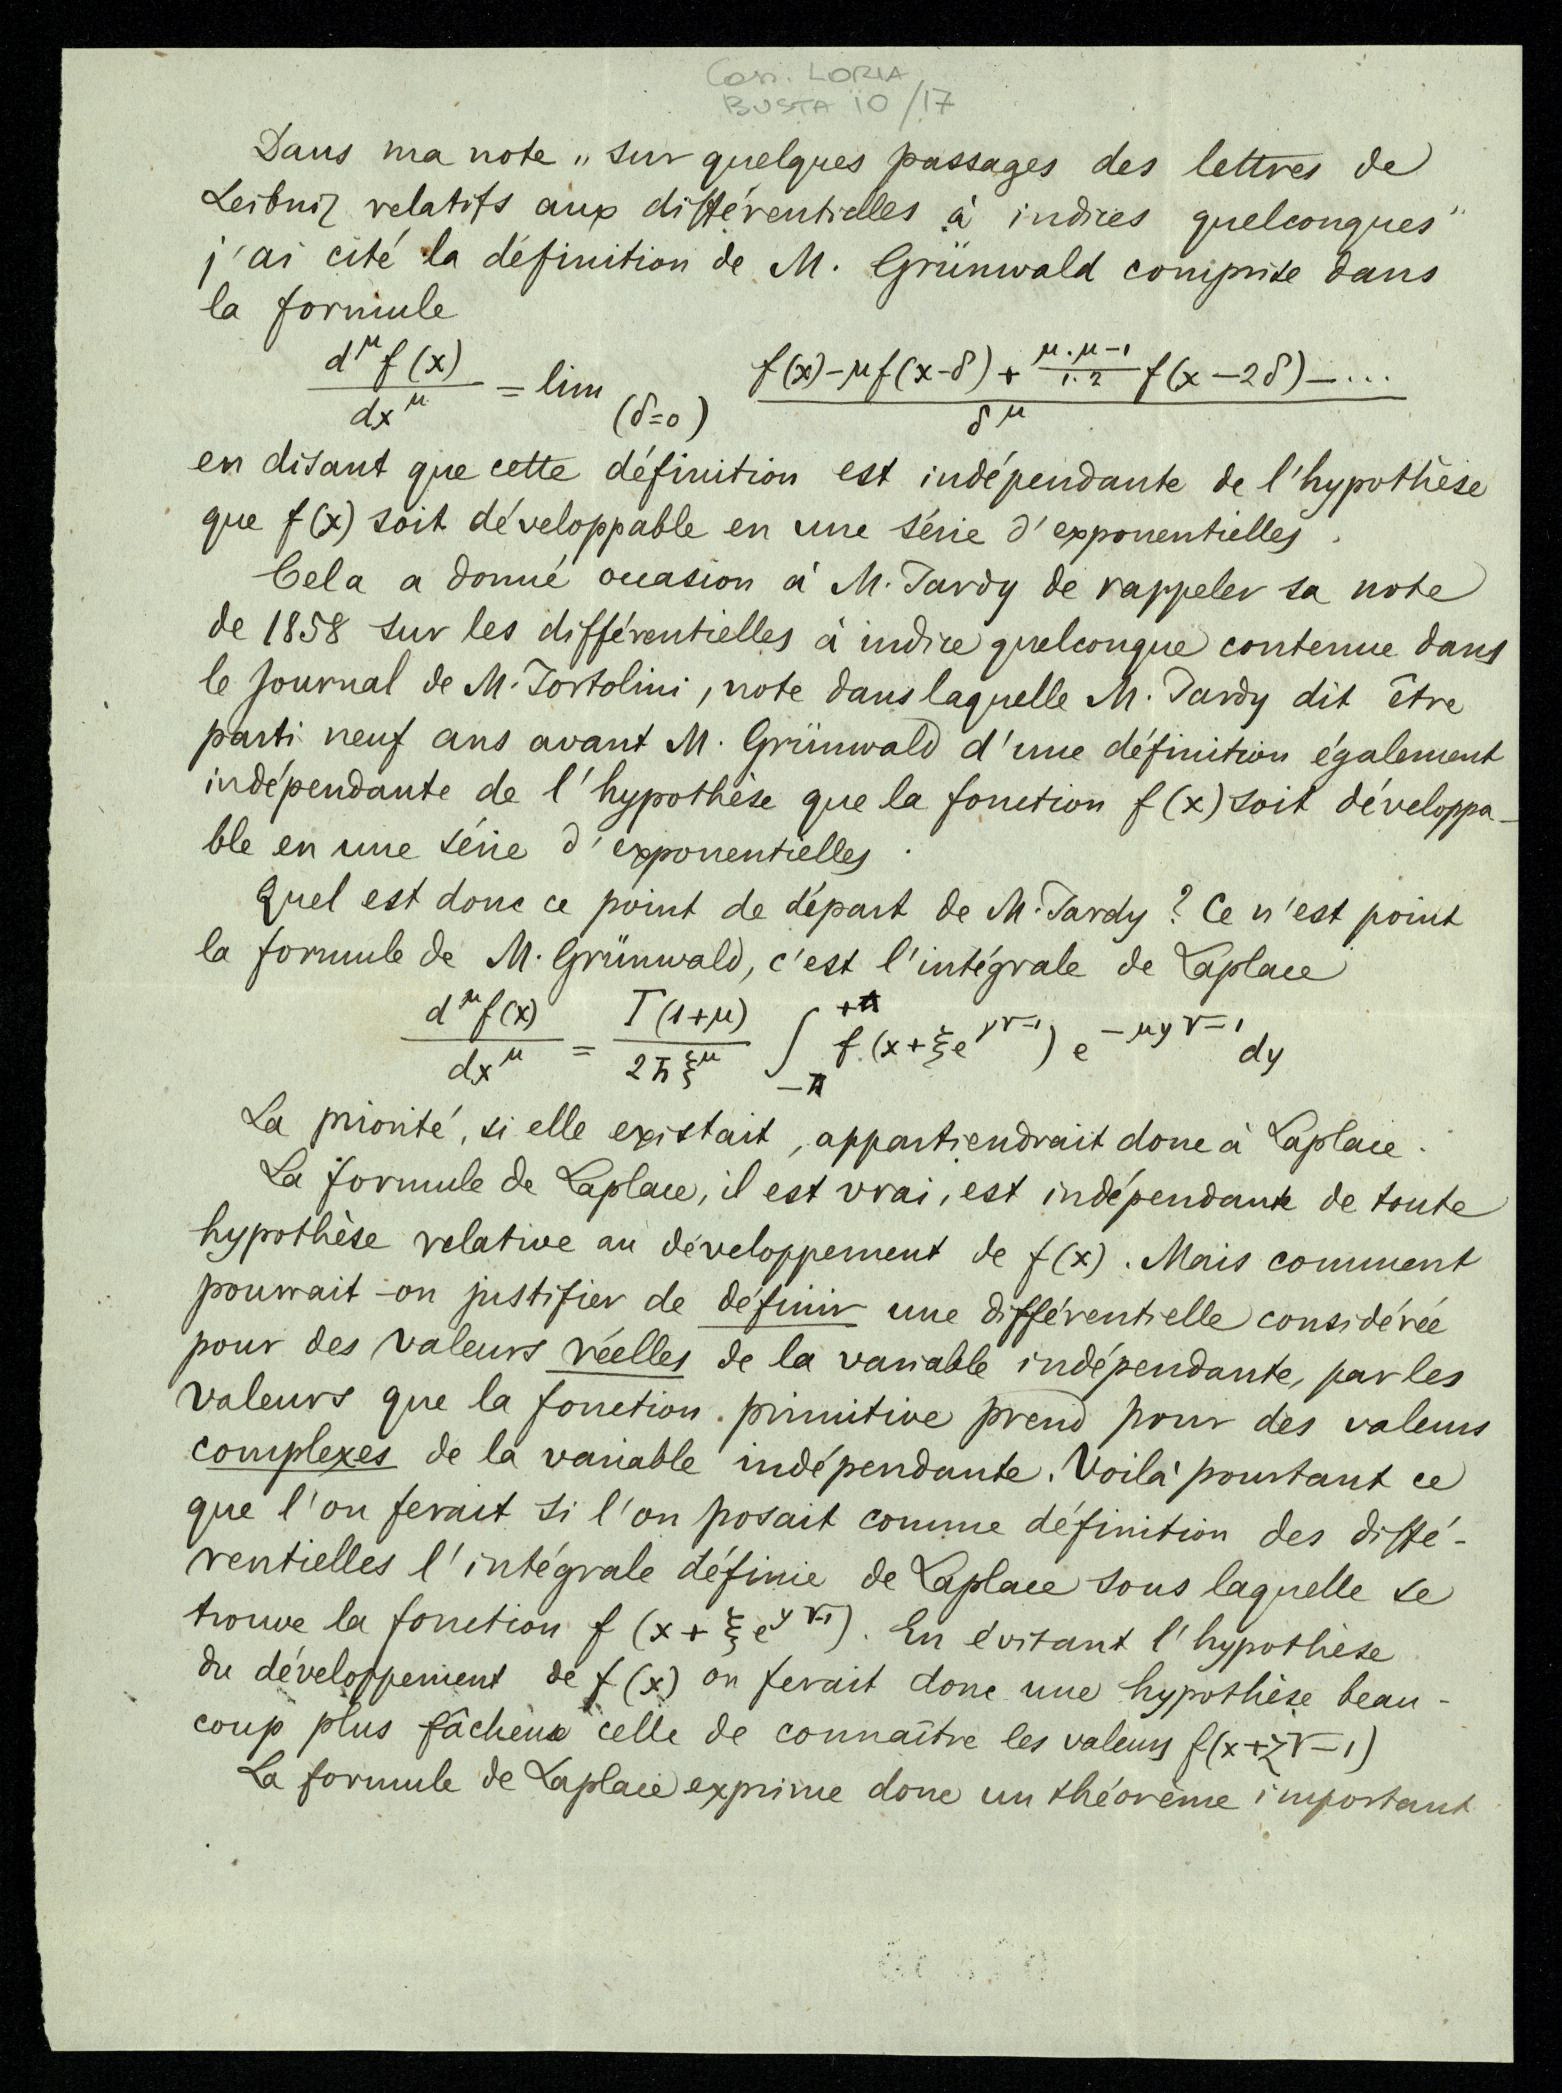 Corr. LORIA
BUSTA 10/17
Dans ma note „sur quelques passages des lettres de
Leibniz relatifs aux différentielles à indices quelconques"
j'ai cité la définition de M. Grünwald comprise dans
la formule
d^μ f(x) / dx^μ = lim (δ=0) [f(x) – μf(x–δ) + (μ.μ–1 / 1.2) f(x–2δ) – ....] / δ^μ
en disant que cette définition est indépendante de l'hypothèse
que f(x) soit développable en une série d'exponentielles.
Cela a donné occasion à M. Tardy de rappeler sa note
de 1858 sur les différentielles à indice quelconque contenue dans
le Journal de M. Tortolini, note dans laquelle M. Tardy dit être
parti neuf ans avant M. Grünwald d'une définition également
indépendante de l'hypothèse que la fonction f(x) soit développa-
ble en une série d'exponentielles.
Quel est donc ce point de départ de M. Tardy? Ce n'est point
la formule de M. Grünwald, c'est l'intégrale de Laplace
d^μ f(x) / dx^μ = Γ(1+μ) / 2πξ^μ ∫_{–π}^{+π} f(x+ξe^{y√–1}) e^{–μy√–1} dy
La priorité, si elle existait, appartiendrait donc à Laplace.
La formule de Laplace, il est vrai, est indépendante de toute
hypothèse relative au développement de f(x). Mais comment
pourrait-on justifier de définir une différentielle considérée
pour des valeurs réelles de la variable indépendante, par les
valeurs que la fonction primitive prend pour des valeurs
complexes de la variable indépendante. Voilà pourtant ce
que l'on ferait si l'on posait comme définition des diffé-
rentielles l'intégrale définie de Laplace sous laquelle se
trouve la fonction f(x+ξe^{y√–1}). En évitant l'hypothèse
du développement de f(x) on ferait donc une hypothèse beau-
coup plus fâcheuse celle de connaître les valeurs f(x+z√–1)
La formule de Laplace exprime donc un théorème important